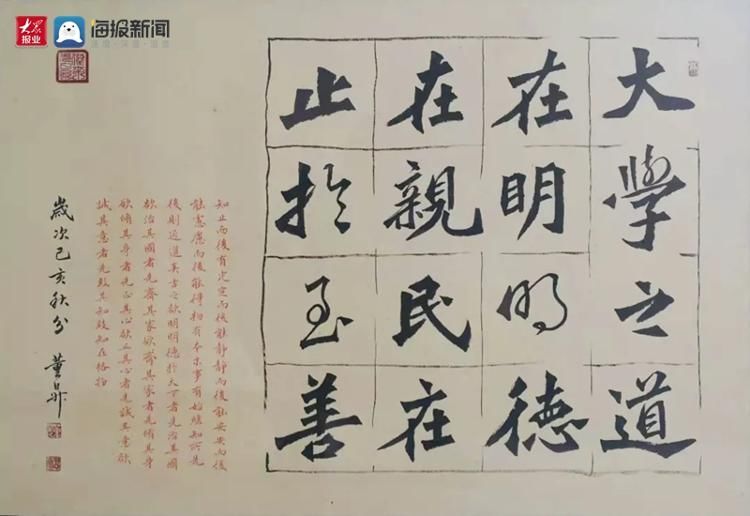 大众报业
海报新闻
大學之道
在明明德
在親民在
止於至善
知止而後有定定而後能靜靜而後能安安而後
能慮慮而後能得物有本末事有始終知所先
後則近道矣古之欲明明德於天下者先治其國
欲治其國者先齊其家欲齊其家者先脩其身
欲脩其身者先正其心欲正其心者先誠其意欲
誠其意者先致其知致知在格物
歲次己亥秋分 董